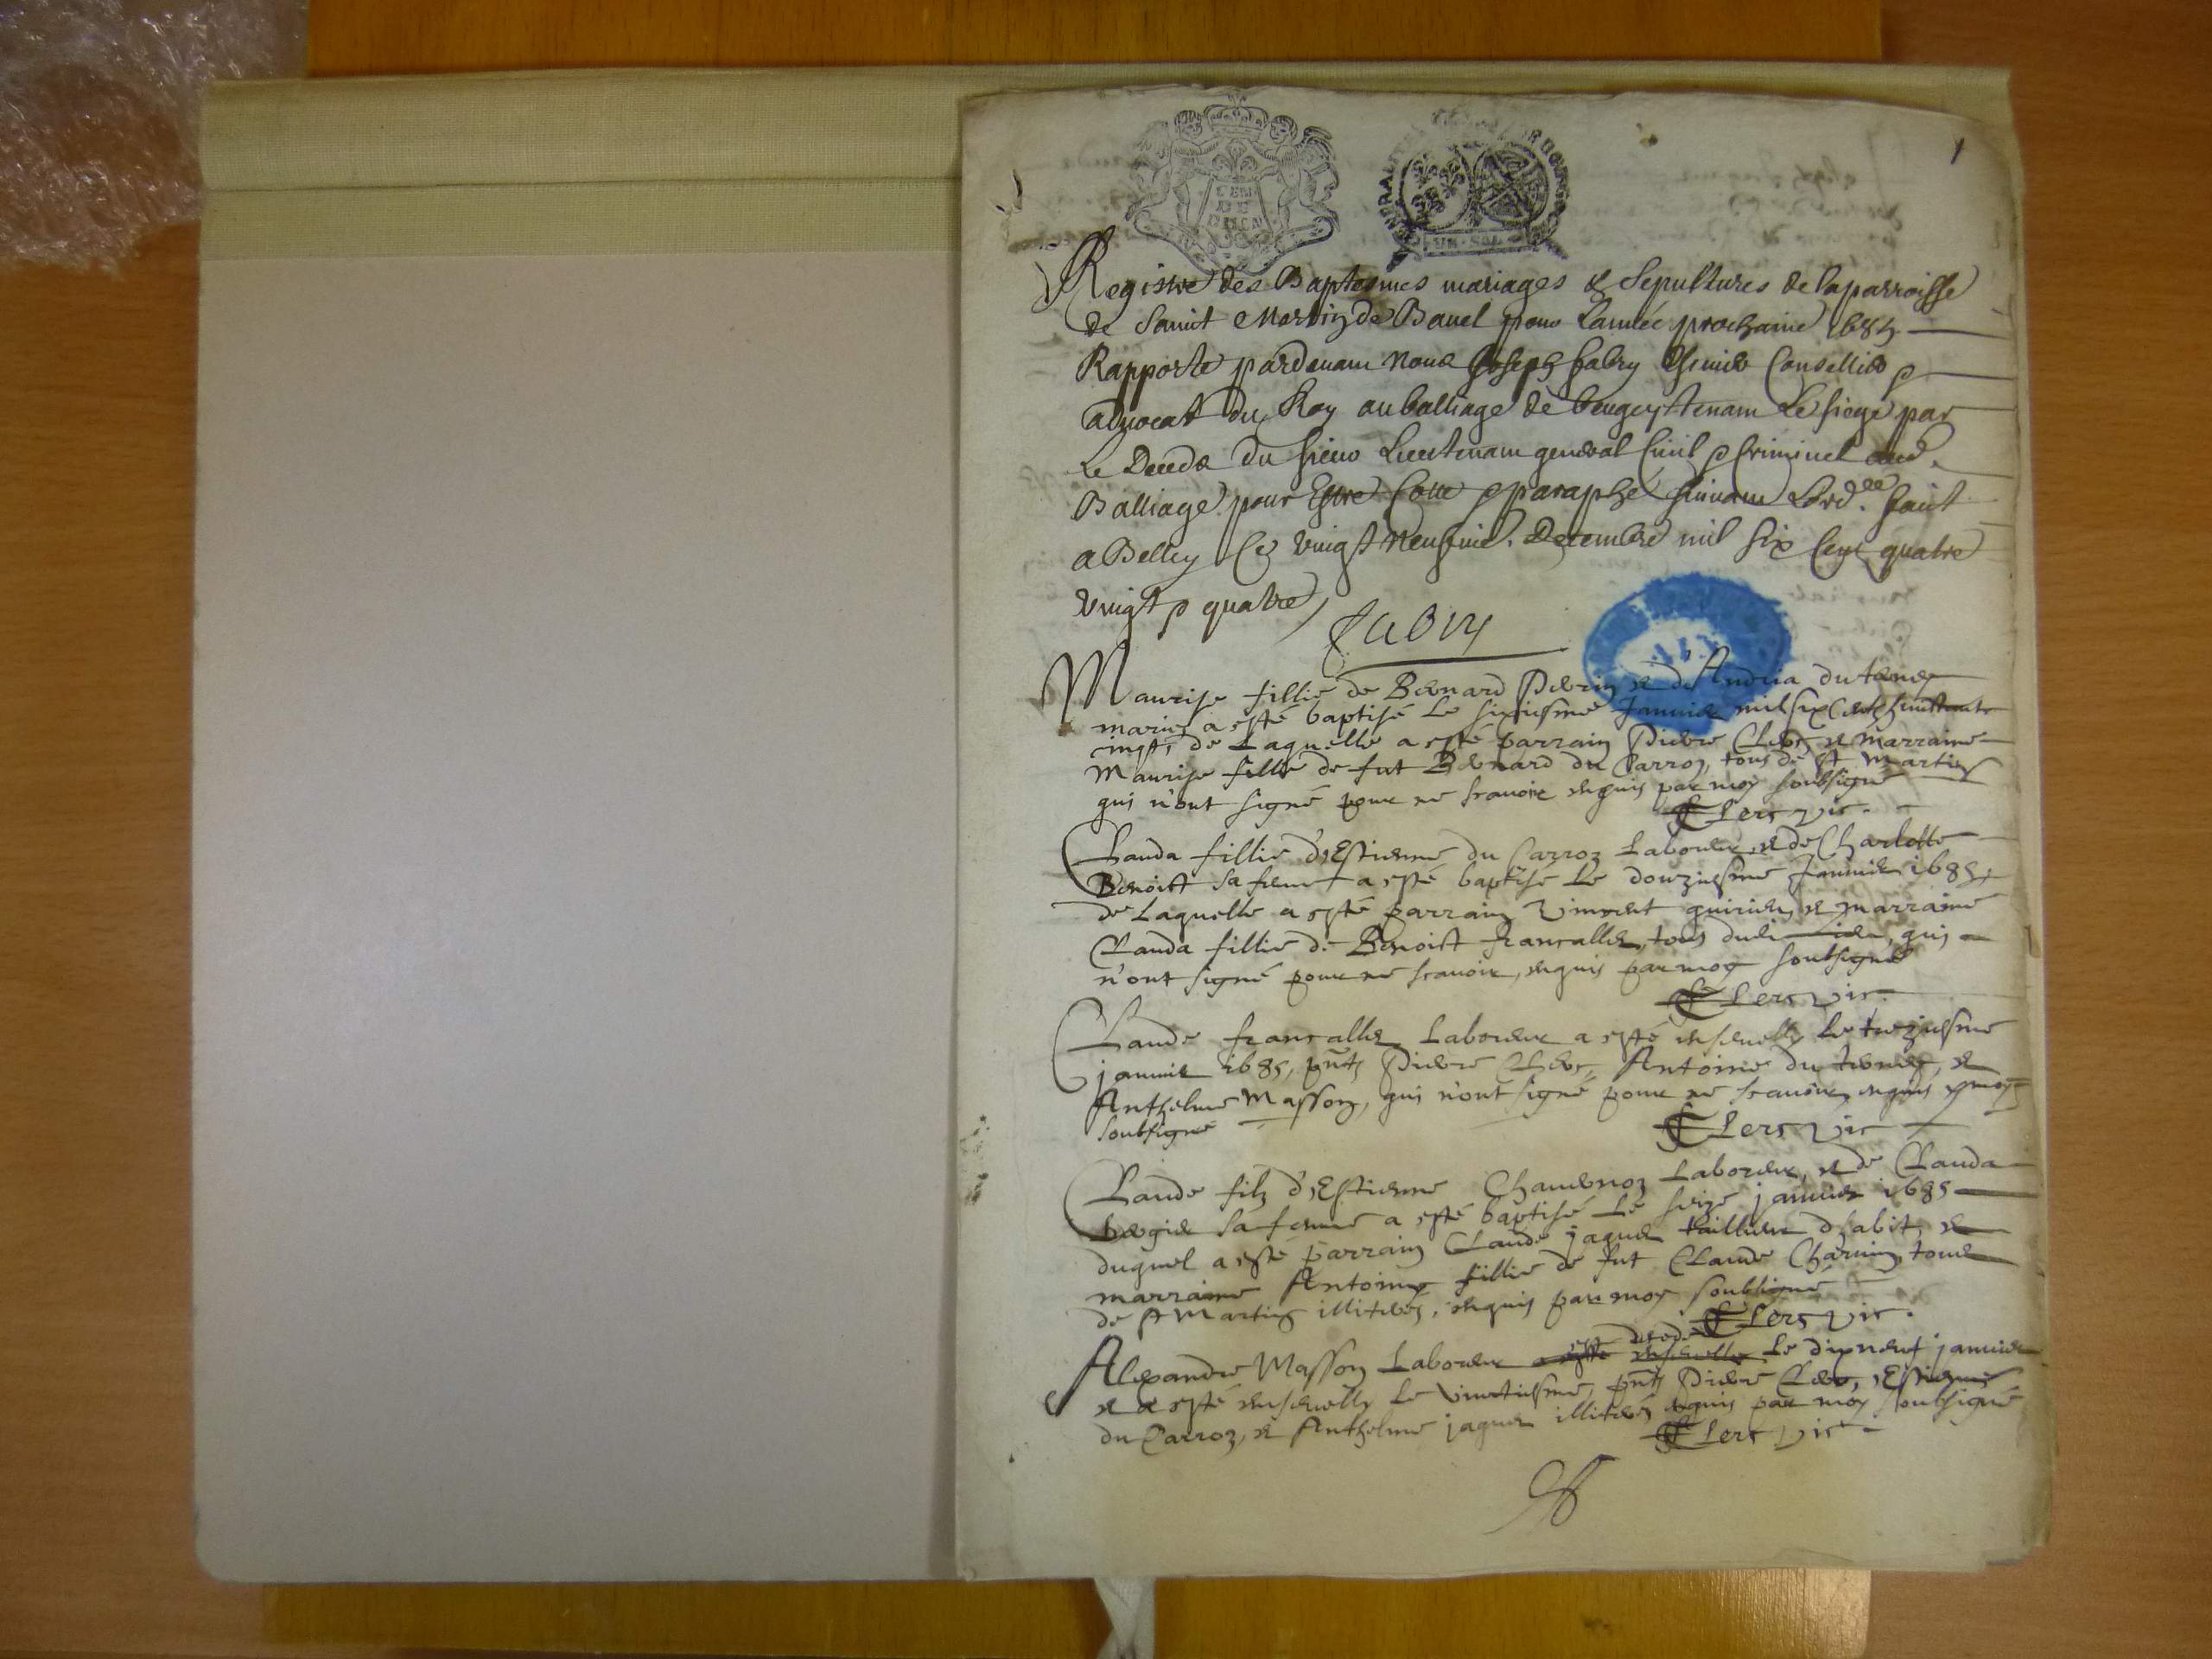 1
UN SOL
Registre des Baptesmes mariages & Sepultures de la parroisse
de Sainct Martin de Bavel pour l'année prochaine 1685
Rapporté pardevant Nous Joseph Fabry Conseiller &
advocat du Roy au balliage de beugey tenant Le siege par
Le Decedz du sieur Lieutenant general Civil & Criminel aud.
Balliage pour Estre Cotté & paraphé suivant L'ord.ce faict
a Belley Ce vingt Neufvie. Decembre mil six Cent quatre
vingt & quatre
Fabry
Maurise fillie de Bernard Perrin et d'Andrea du
mariés a esté baptisé le sixiesme Janvier mil six Cents huittante
cinq, de Laquelle a esté parrain Pierre Clerc, et marraine
Maurise fillie de fut Bernard du Carroz, tous de St Martin
qui n'ont signé pour ne scavoir enquis par moy soubsigné
Clerc vic.
Clauda fillie d'Estienne du Carroz Laboreur et de Charlotte
Benoist sa femme a esté baptisé le douziesme Janvier 1685,
de Laquelle a esté parrain Vincent et marraine
Clauda fillie de Benoist francallet, tous dudi qui
n'ont signé pour ne scavoir, enquis par moy soubsigné
Clerc vic.
Claude francallet Laboreur a esté ensevelly le treziesme
janvier 1685, pnts Pierre Clerc, Antoine du et
Anthelme Masson, qui n'ont signé pour ne scavoir enquis p moy
soubsigné
Clerc vic
Claude filz d'Estienne Chavenoz Laboreur, et de Clauda
sa femme a esté baptisé le seize janvier 1685
duquel a esté parrain Claude jaquet tailleur d'habit, et
marraine Antoina fillie de fut Claude Charvin, tous
de St Martin illiterés, enquis par moy soubsigné
Clerc vic.
est decedé
Alexandre Masson Laboreur a esté ensevelly le dixneuf janvier
et a esté ensevelly le vintiesme, pnts Pierre Clerc, Estienne
du Carroz, et Anthelme jaquet illiterés enquis par moy soubsigné
Clerc vic